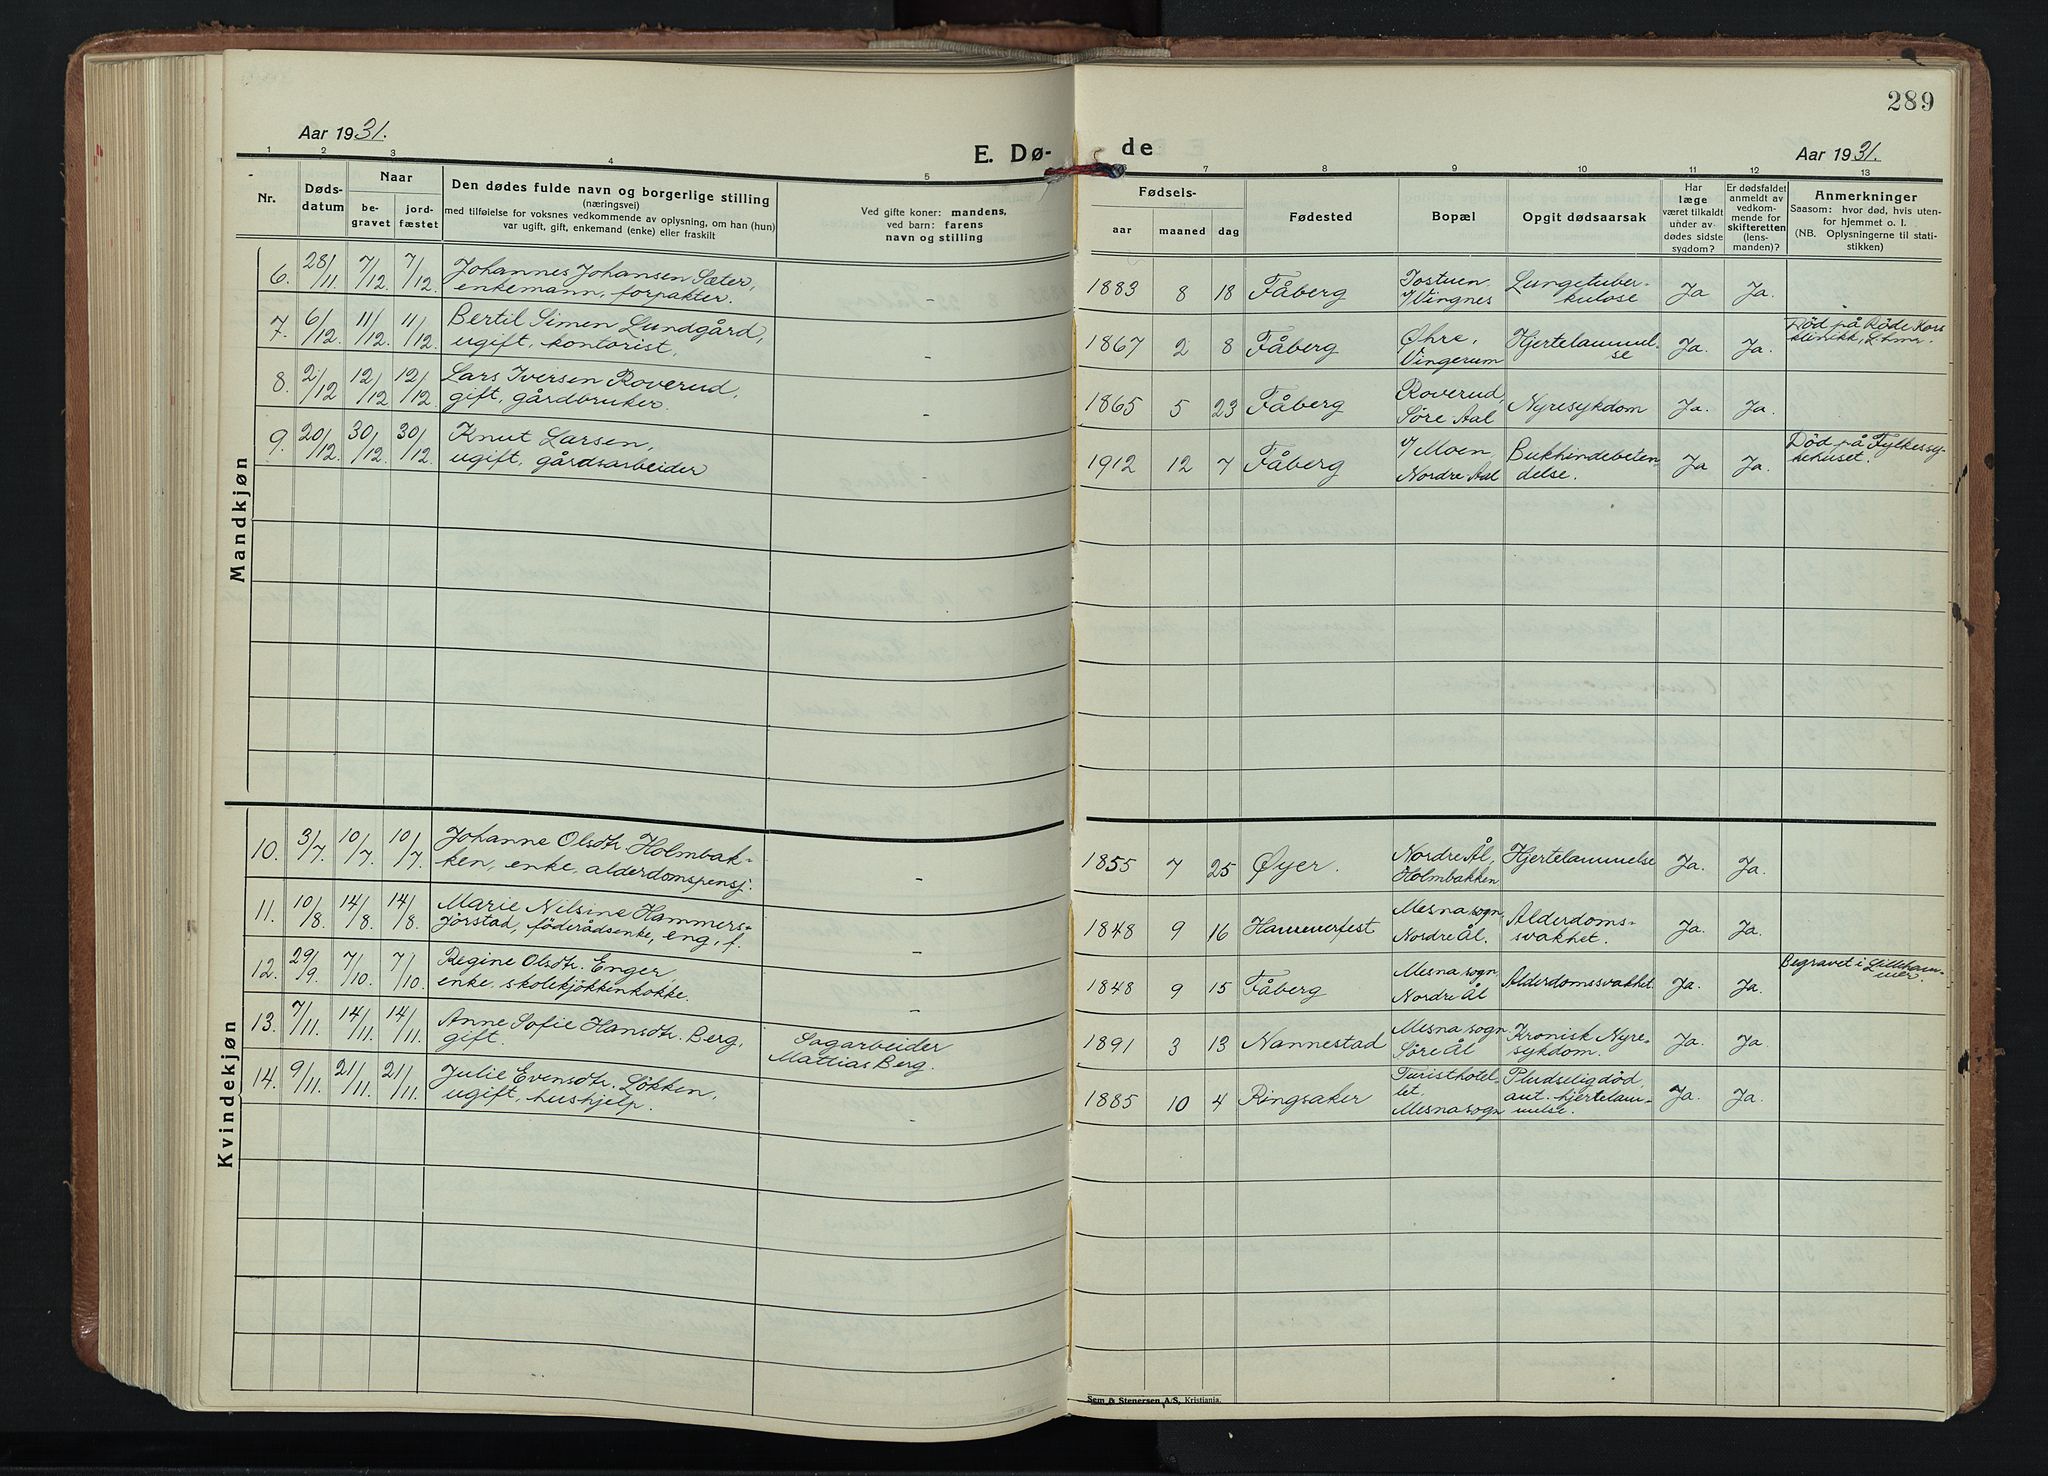 289
Aar 1931.
E. Dø-
de
Aar 1931.
1 2 3 4 5 6 7 8 9 10 11 12 13
Nr.
Døds-
datum
Naar
be-
gravet
jord-
fæstet
Den dødes fulde navn og borgerlige stilling
(næringsvei)
med tilføielse for voksnes vedkommende av oplysning, om han (hun)
var ugift, gift, enkemand (enke) eller fraskilt
Ved gifte koner: mandens,
ved barn: farens
navn og stilling
Fødsels-
aar maaned dag
Fødested
Bopæl
Opgit dødsaarsak
Har
læge
været tilkaldt
under av-
dødes sidste
sygdom?
Er dødsfaldet
anmeldt av
vedkom-
mende for
skifteretten
(lens-
manden)?
Anmerkninger
Saasom: hvor død, hvis uten-
for hjemmet o. l.
(NB. Oplysningerne til stati-
stikken)
Mandkjøn
6. 28/11. 7/12. 7/12. Johannes Johansen Sæter,
enkemann, forpakter. -
1883 8 18 Fåberg Jostuen
v/Vingnes Lungetuber-
kulose Ja Ja.
7. 6/12. 11/12. 11/12. Bertil Simen Lundgård,
ugift, kontorist, -
1867 2 8 Fåberg Øhre,
Vingerum Hjertelammel-
se Ja. Ja. Død på Røde Kors
klinikk, L.hmr.
8. 2/12 12/12 12/12 Lars Iversen Roverud,
gift, gårdbruker. -
1865 5 23 Fåberg Roverud,
Søre Aal Nyresykdom Ja. Ja.
9. 20/12. 30/12. 30/12. Knut Larsen,
ugift, gårdsarbeider -
1912 12 7 Fåberg v/Moen,
Nordre Aal Bukhindebeten-
delse. Ja Ja. Død på Fylkessy-
kehuset.
Kvindekjøn
10. 3/7. 10/7. 10/7. Johanne Olsdtr. Holmbak-
ken, enke, alderdomspensj. -
1855 7 25 Øyer. Nordre Ål,
Holmbakken Hjertelammelse Ja. Ja.
11. 10/8. 14/8. 14/8. Marie Nilsine Hammers-
Jørstad, føderådsenke, eng, f. -
1848 9 16 Hammerfest Mesna sogn
Nordre Ål. Alderdoms-
svakhet. Ja. Ja.
12. 29/9. 7/10. 7/10. Regine Olsdtr. Enger
enke, skolekjøkkenkokke. -
1848 9 15 Fåberg Mesna sogn,
Nordre Ål Alderdomssvakhet. Ja. Ja. Begravet i Lilleham-
mer.
13. 7/11. 14/11. 14/11. Anne Sofie Hansdtr. Berg,
gift. Sagarbeider
Mattias Berg.
1891 3 13 Nannestad Mesna sogn
Søre Ål Kronisk Nyre-
sykdom. Ja. Ja.
14. 9/11. 21/11. 21/11. Julie Evensdtr. Løkken,
ugift, hushjelp. -
1885 10 4 Ringsaker Turisthotel-
let,
Mesna sogn Pludselig død,
ant. hjertelam-
melse. Ja. Ja.
Sem & Stenersen A/S, Kristiania.